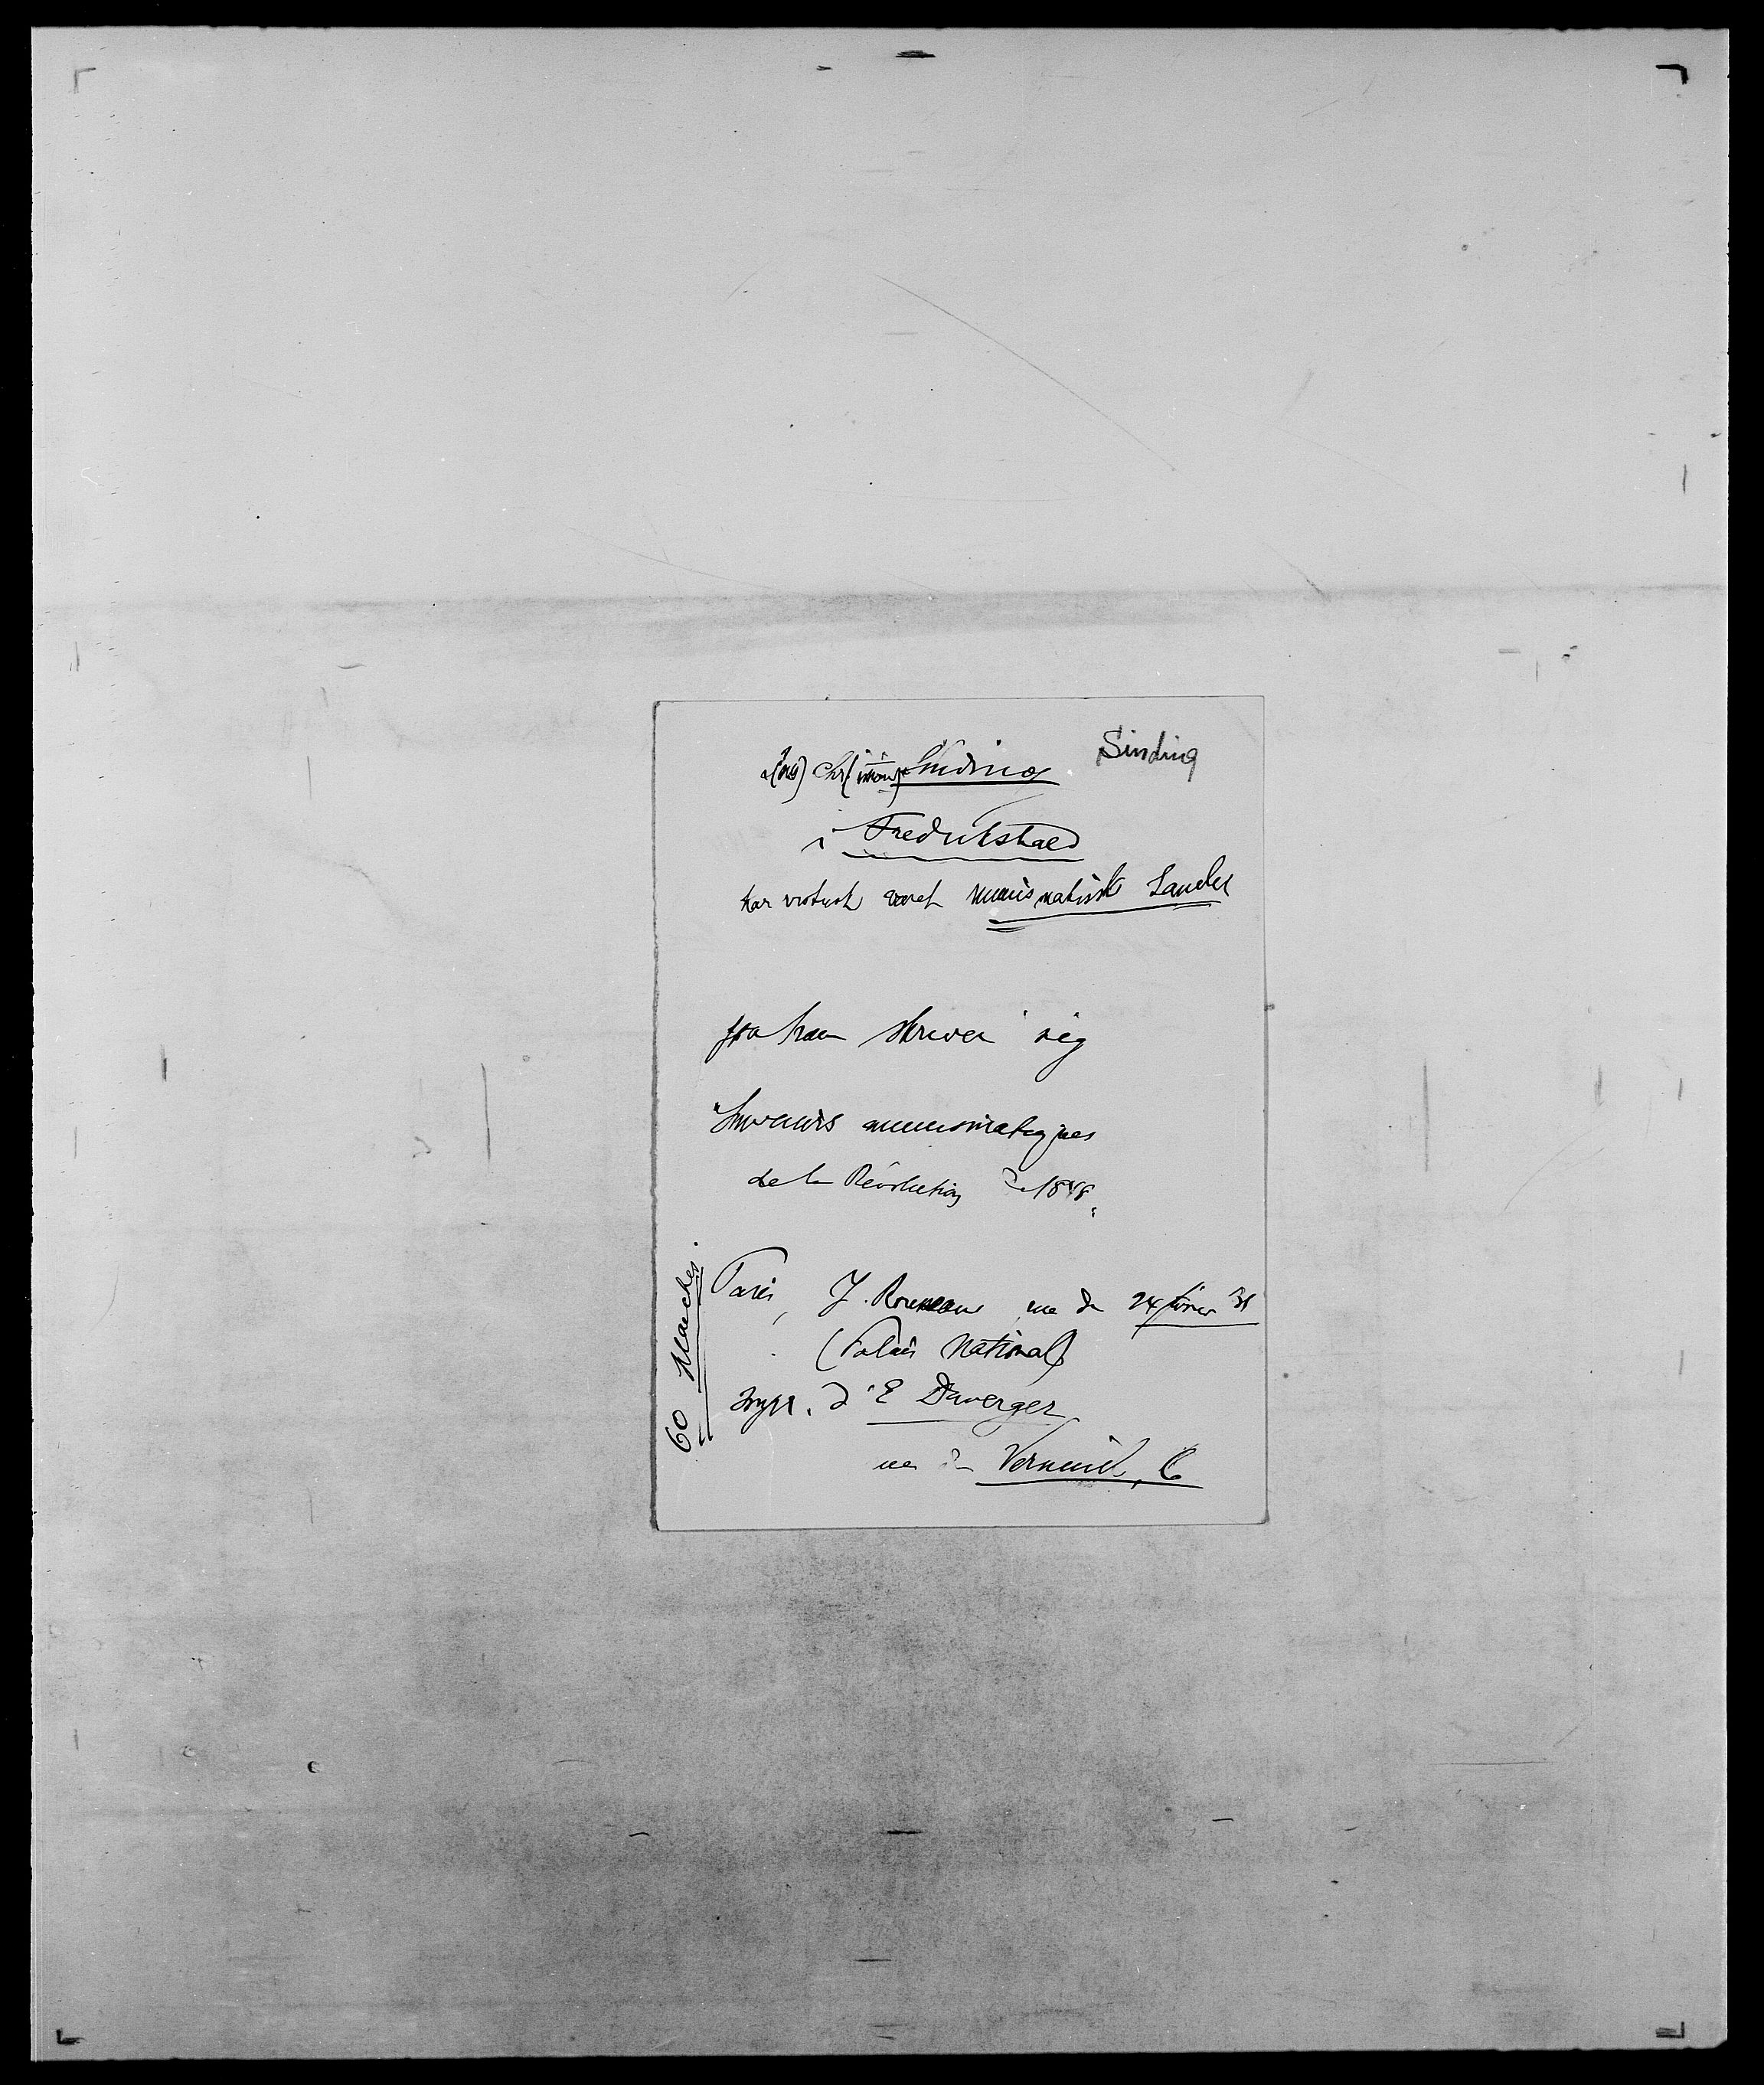 Sinding
Chr( Sinding
i Fredrikshald
har numismatisk
skriver sig
Souvenirs numismatiques
de la Révolution de 1848.
Paris, J. Rousseau, rue du 24 février
(Palais National)
Impr. d'E Duverger
rue de Verneuil, 6
60 Planches.